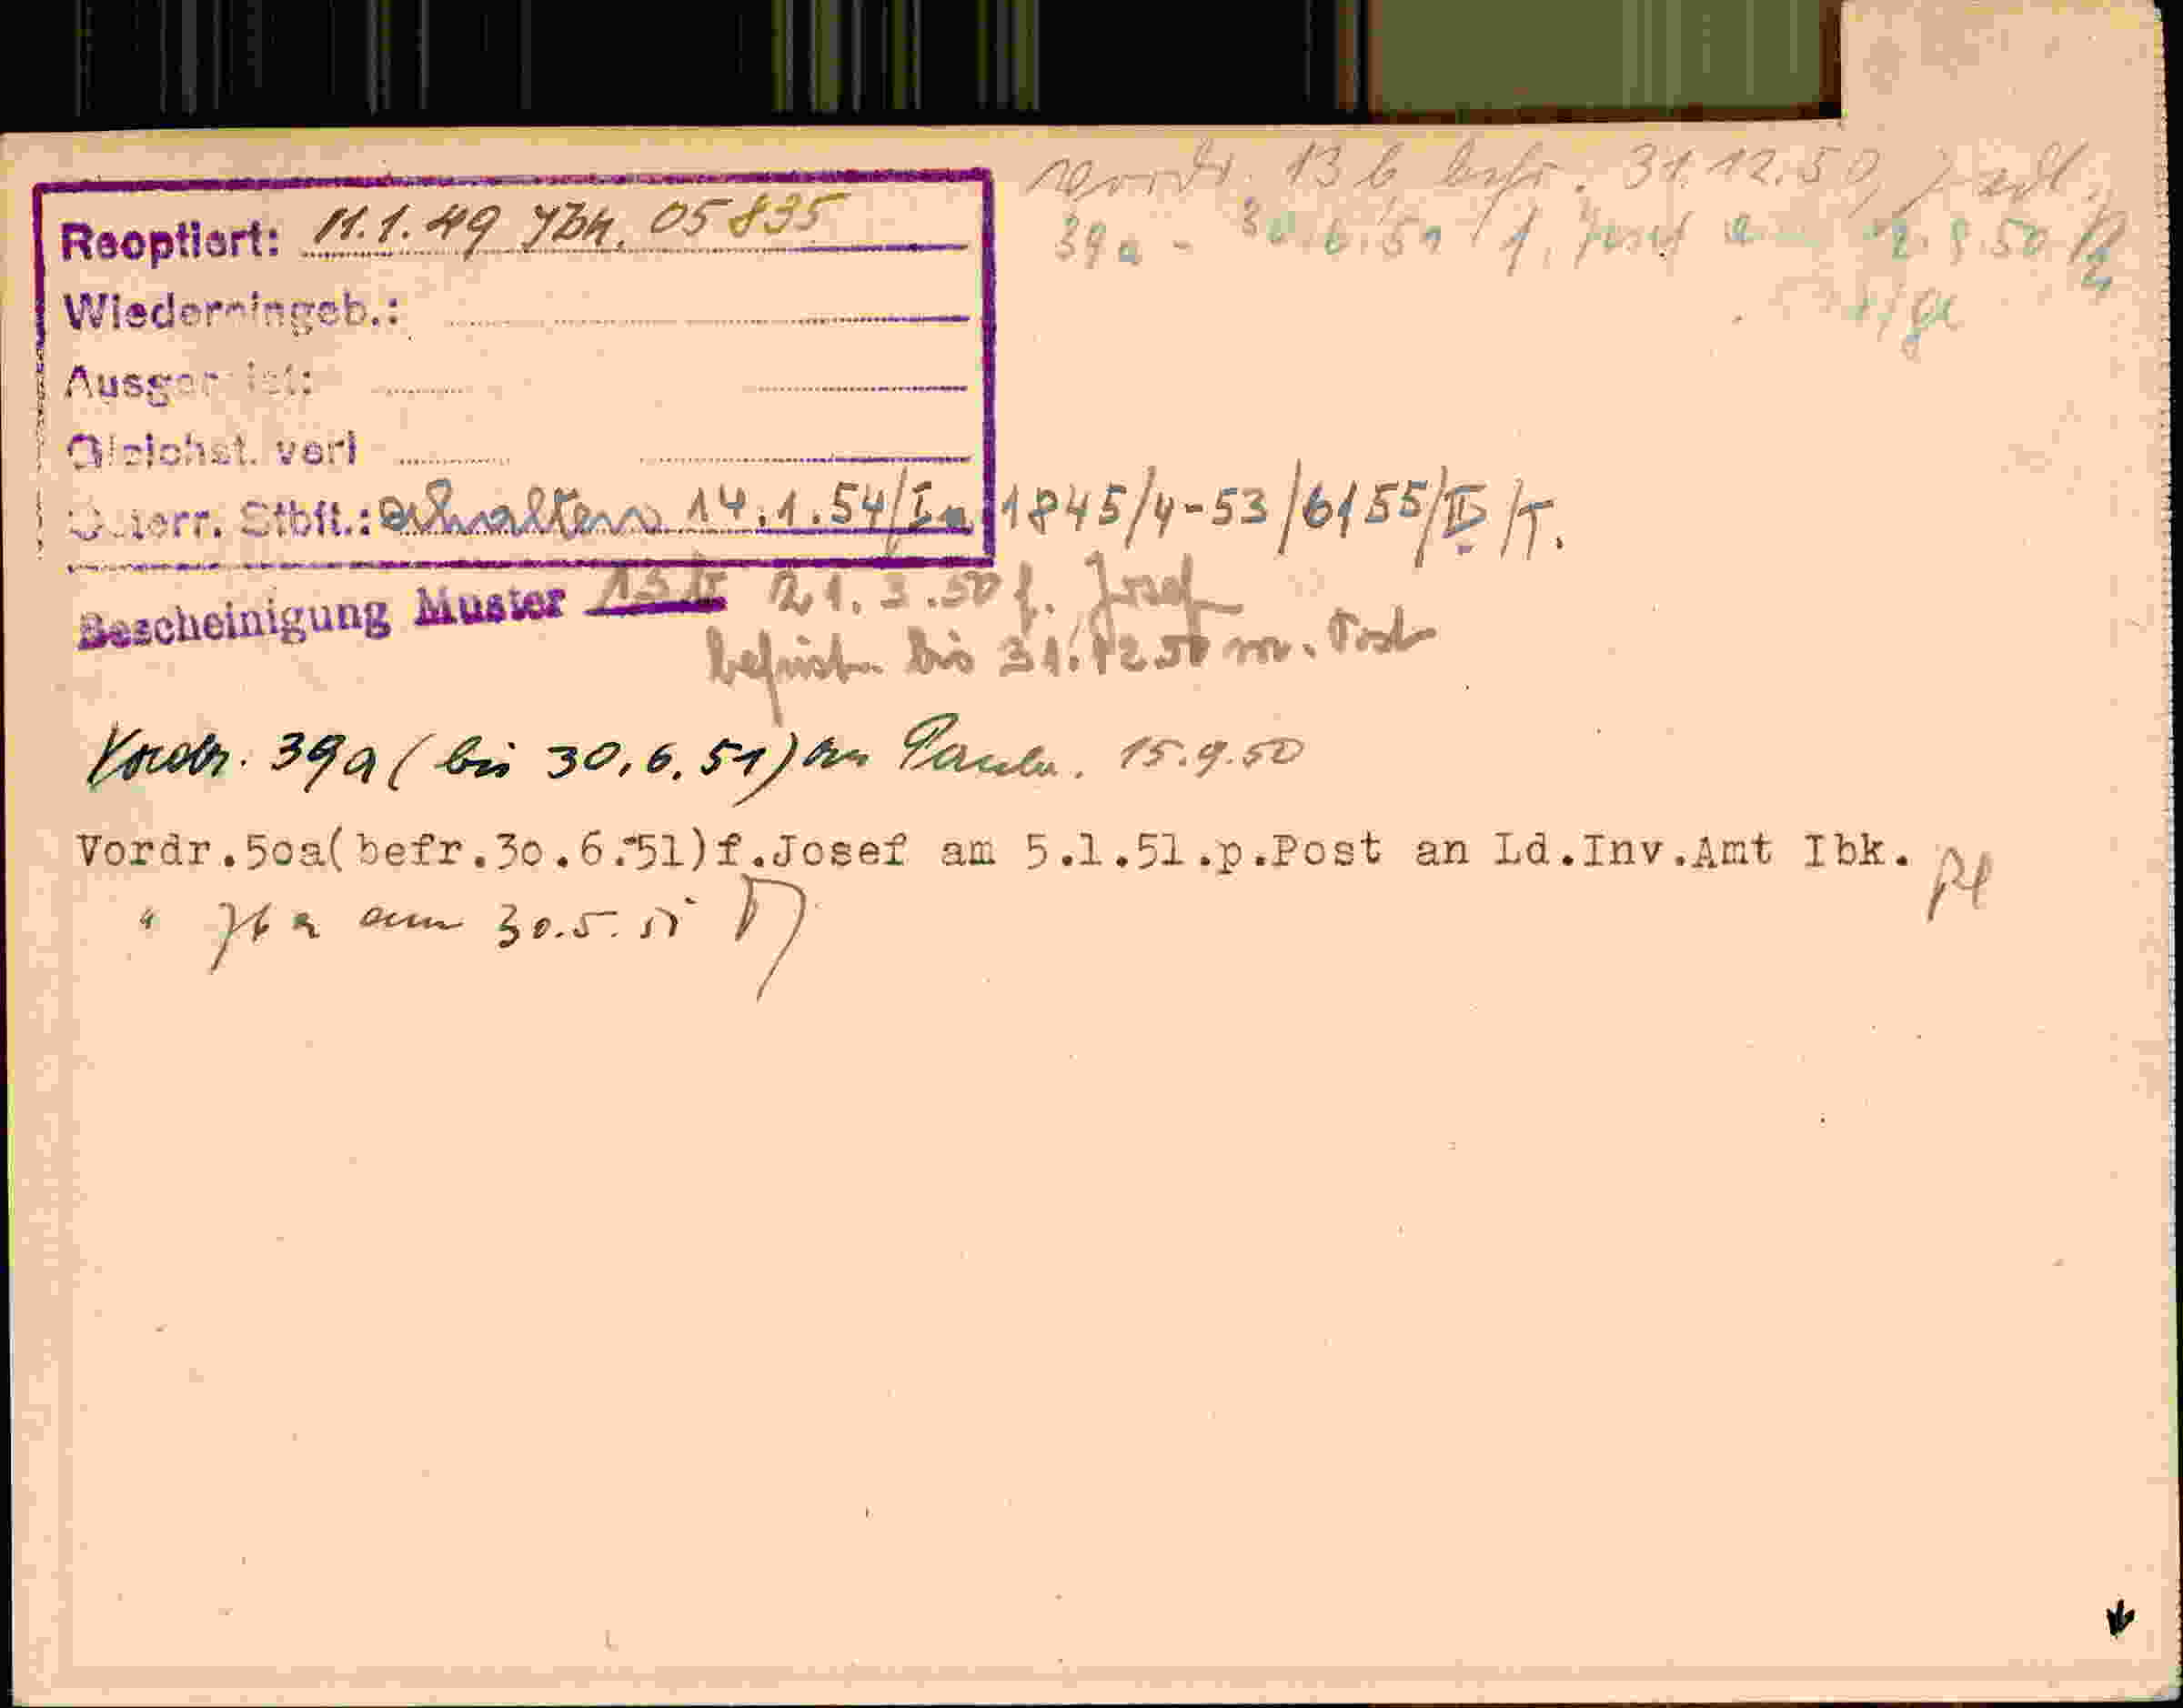 Vordr. 13b befr. 31.12.50,
39a - 30.6.51 f. Josef 2.9.50
Reoptiert: 11.1.49 Jbk. 05835
Wiedereingeb.:
Ausgereist:
Gleichst. verl
Österr. Stbft.: erhalten 14.1.54/Ia 1845/4-53/6155/II/T.
Bescheinigung Muster 13b 21.3.50 f. Josef
befristen bis 31.12.50 m. Post
Vordr. 39a (bis 30.6.51) an Paula. 15.9.50
Vordr.5oa(befr.3o.6.51)f.Josef am 5.1.51.p.Post an Ld.Inv.Amt Ibk.
" 76a am 30.5.51